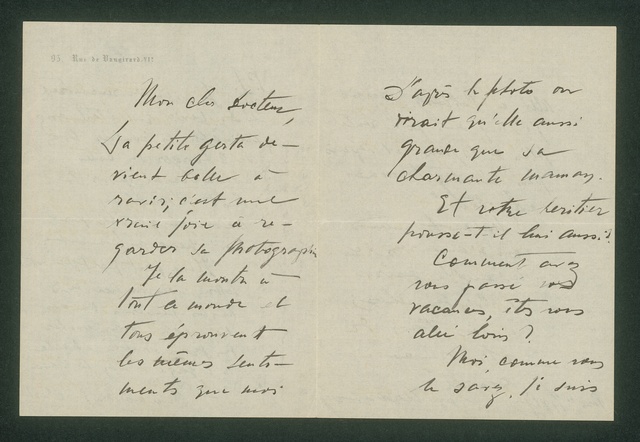 95, Rue de Vaugirard. VIe
Mon cher Docteur,
La petite gerta de-
vient belle à
ravir, c'est une
vraie joie à re-
garder sa photographie
Je la montre à
tout le monde et
tous éprouvent
les mêmes senti-
ments que moi
D'après la photo on
dirait qu'elle aussi
grande que sa
charmante maman.
Et votre héritier
pousse-t-il lui aussi?
Comment avez
vous passé vos
vacances, êtes vous
allé loin?
Moi, comme vous
le savez, je suis